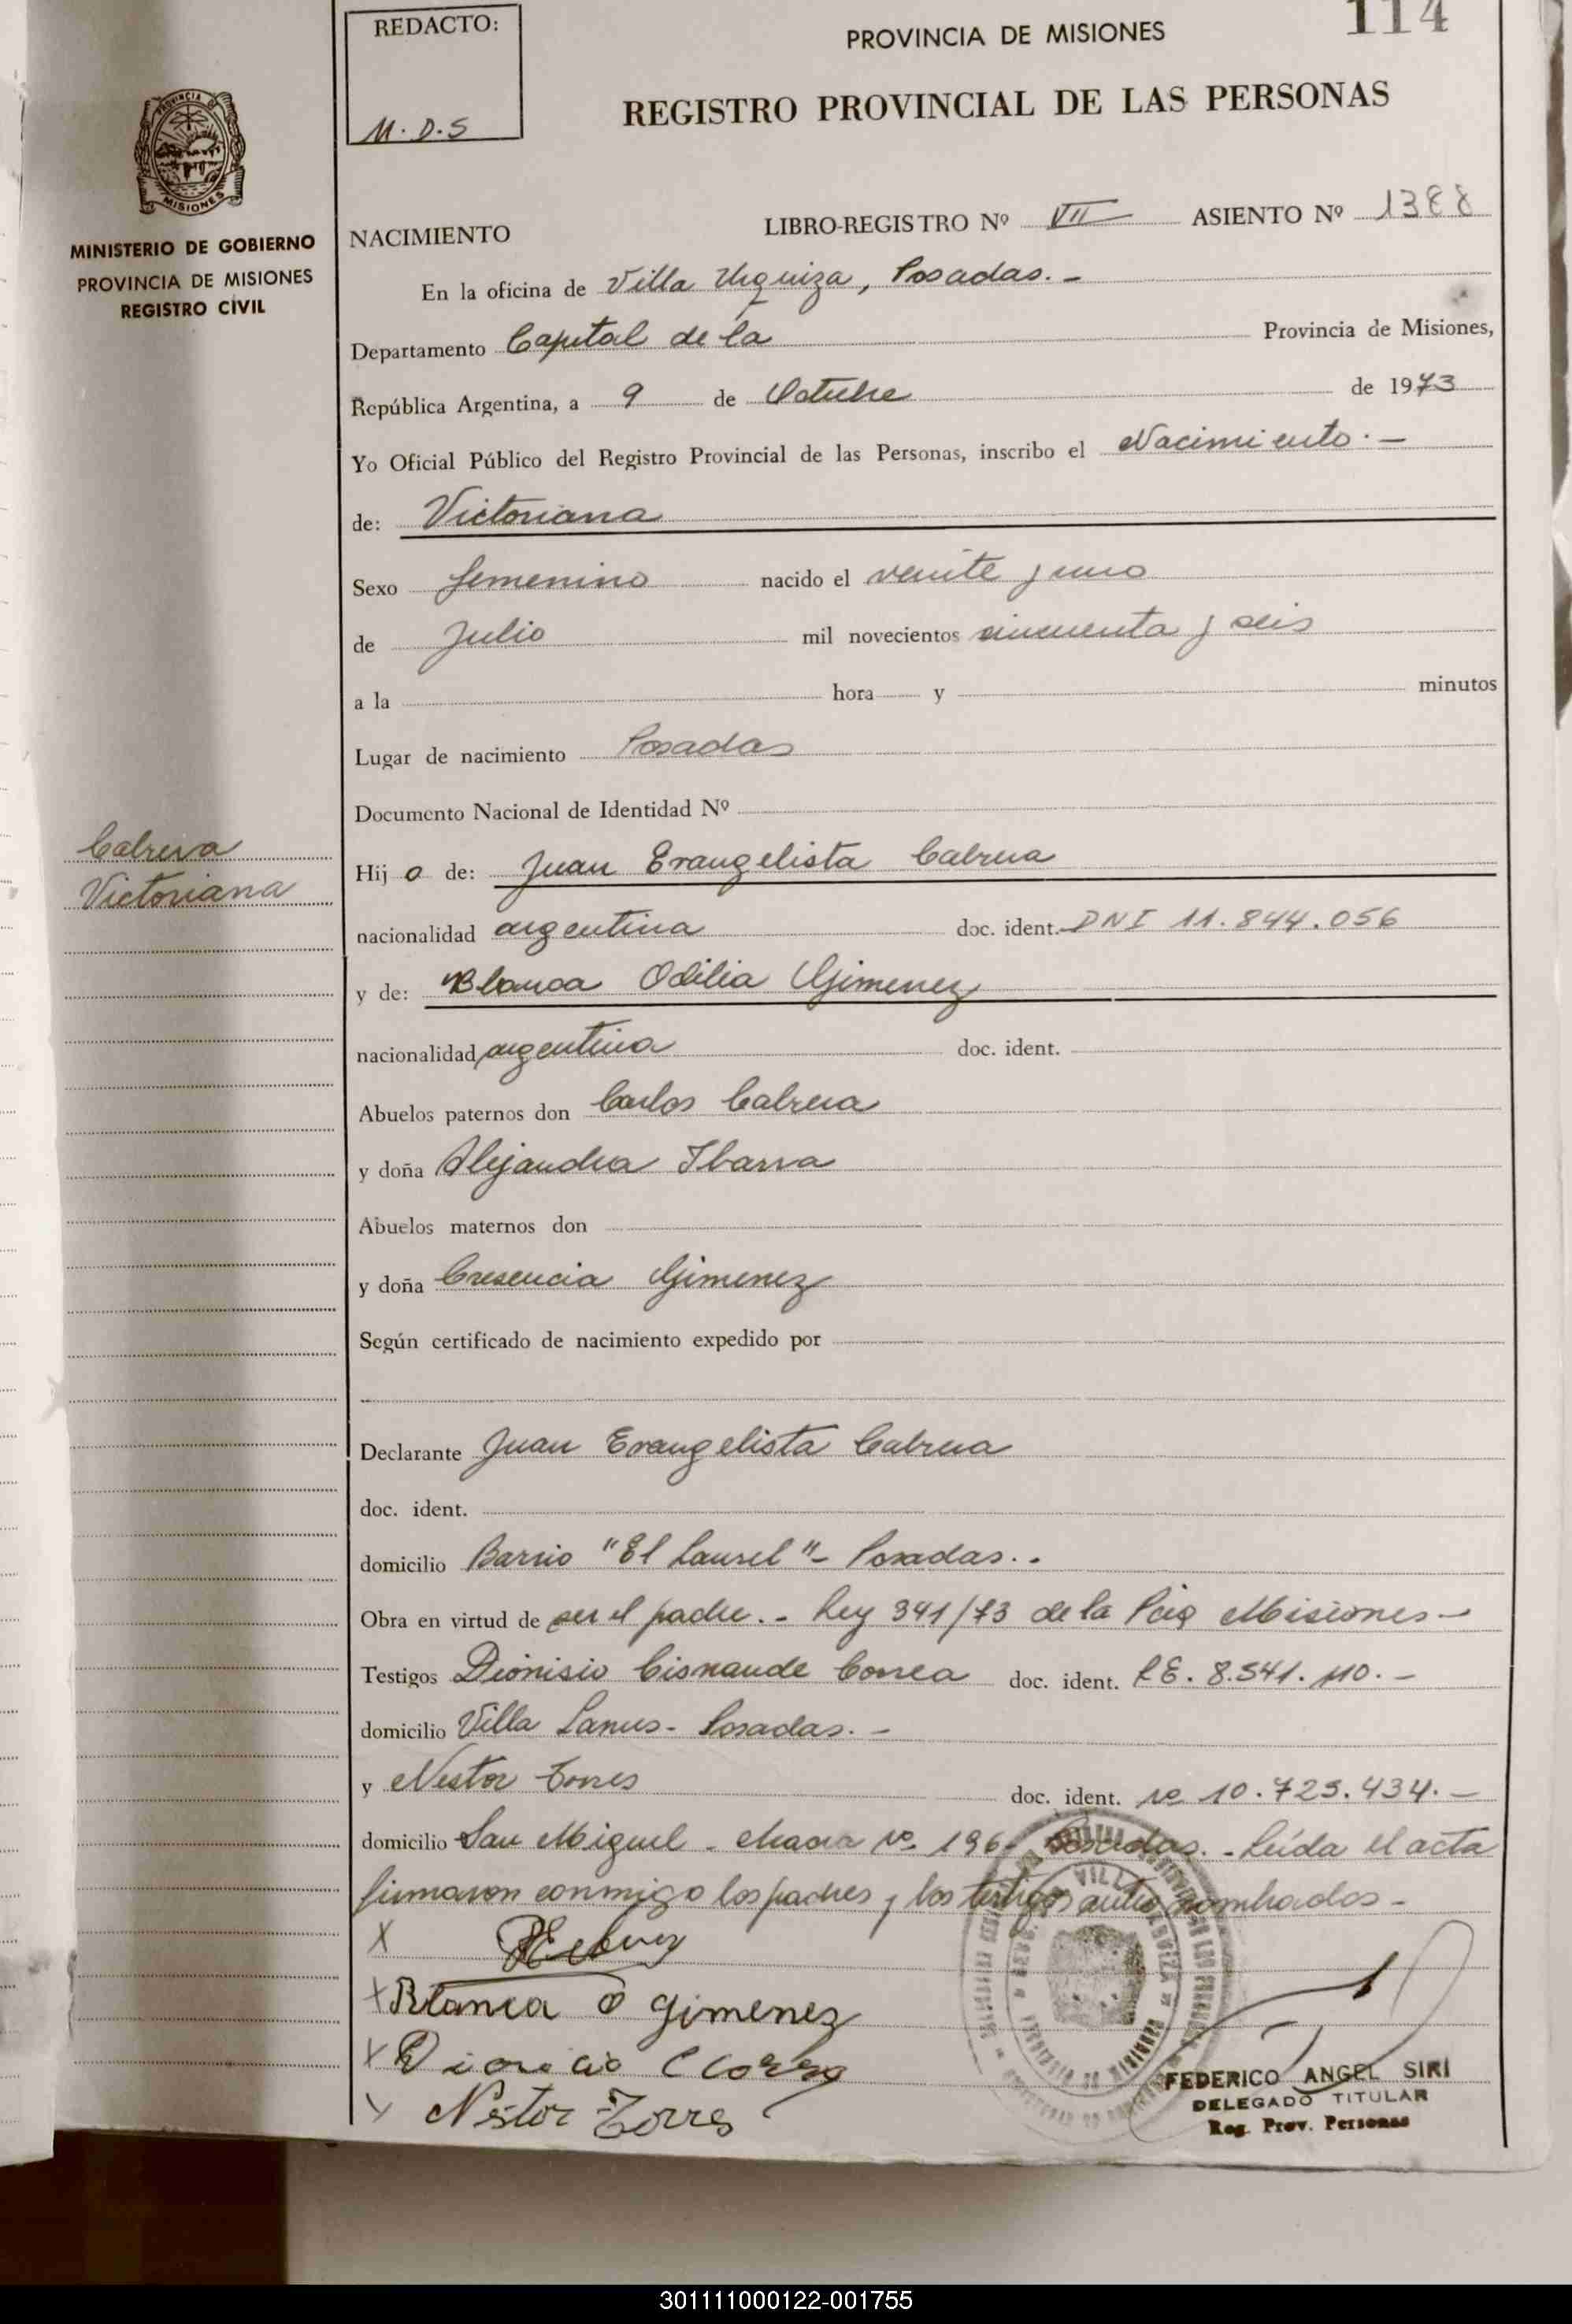 REDACTO:
M.D.S
PROVINCIA DE MISIONES
114
REGISTRO PROVINCIAL DE LAS PERSONAS
MISIONES
MINISTERIO DE GOBIERNO
PROVINCIA DE MISIONES
REGISTRO CIVIL
NACIMIENTO LIBRO-REGISTRO Nº VII ASIENTO Nº 1388
En la oficina de Villa Urquiza, Posadas.-
Departamento Capital de la Provincia de Misiones,
República Argentina, a 9 de Octubre de 1973
Yo Oficial Público del Registro Provincial de las Personas, inscribo el Nacimiento.-
de: Victoriana
Sexo femenino nacido el veinte y uno
de Julio mil novecientos cincuenta y seis
a la hora y minutos
Lugar de nacimiento Posadas
Documento Nacional de Identidad Nº
Cabrera
Victoriana
Hij a de: Juan Evangelista Cabrera
nacionalidad argentina doc. ident. DNI 11.844.056
y de: Blanca Odilia Gimenez
nacionalidad argentina doc. ident.
Abuelos paternos don Carlos Cabrera
y doña Alejandra Ibarra
Abuelos maternos don
y doña Cresencia Gimenez
Según certificado de nacimiento expedido por
Declarante Juan Evangelista Cabrera
doc. ident.
domicilio Barrio "El Laurel"- Posadas..
Obra en virtud de ser el padre.- Ley 341/73 de la Pcia Misiones-
Testigos Dionisio Correa doc. ident. LE. 8.541.110.-
domicilio Villa Lanus- Posadas.-
y Nestor Torres doc. ident. nº 10.723.434.-
domicilio San Miguel - chacra nº 196- Posadas.- Leída el acta
firmaron conmigo los padres y los testigos antes nombrados-
X
X Blanca O Gimenez
X Dionicio C Correa
X Nestor Torres
FEDERICO ANGEL SIRI
DELEGADO TITULAR
Reg. Prov. Personas
301111000122-001755